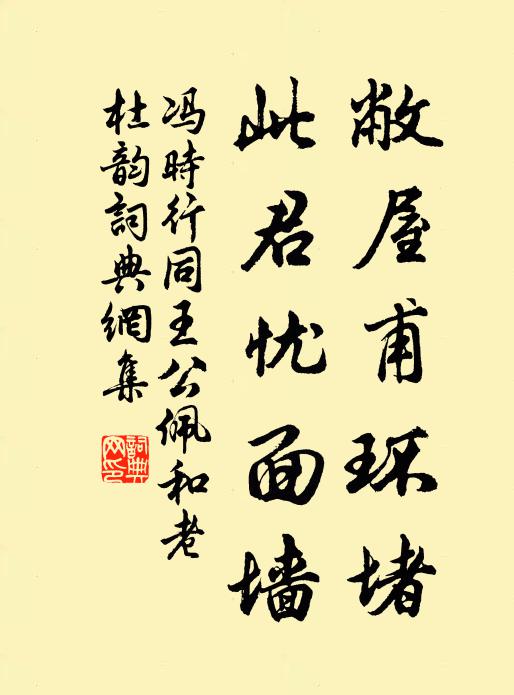 敝屋甫环堵
此君忧面墙
冯時行同王公佩和老
杜韵詞典網集
詞典网印